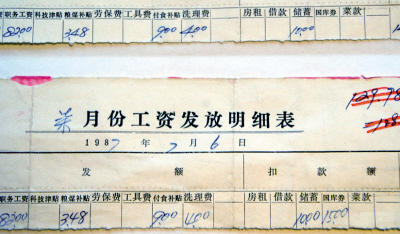 职务工资 科技津贴 粮煤补贴 劳保费 工具费 付食补贴 洗理费 房租 借款 储蓄 国库券 菜款
8200 348 900 400 1000
柒月份工资发放明细表
1987年7月6日
发 额 扣 款 额
职务工资 科技津贴 粮煤补贴 劳保费 工具费 付食补贴 洗理费 房租 借款 储蓄 国库券 菜款
8200 348 900 1000